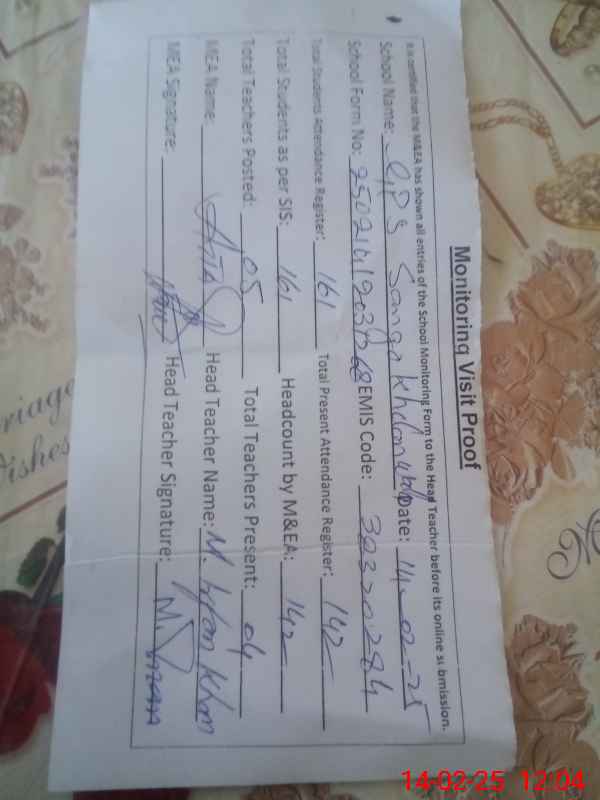 Monitoring Visit Proof
It is certified that the M&EA has shown all entries of the School Monitoring Form to the Head Teacher before its online submission.
School Name: GPS Sanga Date: 14-02-25
School Form No: EMIS Code: 38320284
Total Students Attendance Register: 161 Total Present Attendance Register: 142
Total Students as per SIS: 161 Headcount by M&EA: 142
Total Teachers Posted: 05 Total Teachers Present: 04
MEA Name: Head Teacher Name: M. Irfan Khan
MEA Signature: Head Teacher Signature: M.
14-02-25 12:04